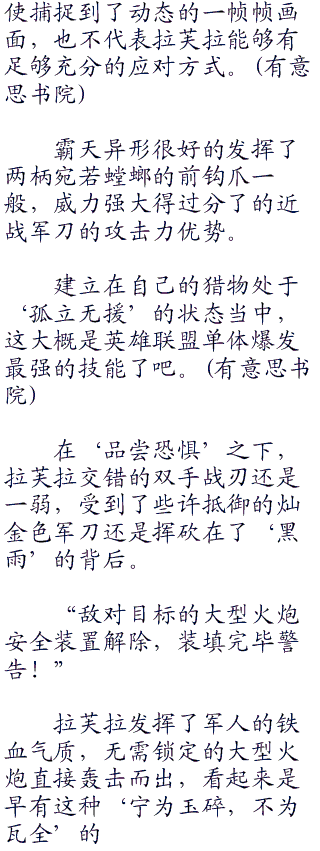 使捕捉到了动态的一帧帧画
面，也不代表拉芙拉能够有
足够充分的应对方式。(有意
思书院)
霸天异形很好的发挥了
两柄宛若螳螂的前钩爪一
般，威力强大得过分了的近
战军刀的攻击力优势。
建立在自己的猎物处于
‘孤立无援’的状态当中，
这大概是英雄联盟单体爆发
最强的技能了吧。(有意思书
院)
在‘品尝恐惧’之下，
拉芙拉交错的双手战刃还是
一弱，受到了些许抵御的灿
金色军刀还是挥砍在了‘黑
雨’的背后。
“敌对目标的大型火炮
安全装置解除，装填完毕警
告！”
拉芙拉发挥了军人的铁
血气质，无需锁定的大型火
炮直接轰击而出，看起来是
早有这种‘宁为玉碎，不为
瓦全’的